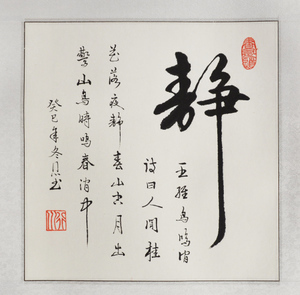 静
王维鸟鸣涧
诗曰人闲桂
花落夜静春山空月出
惊山鸟时鸣春涧中
癸巳年冬月书